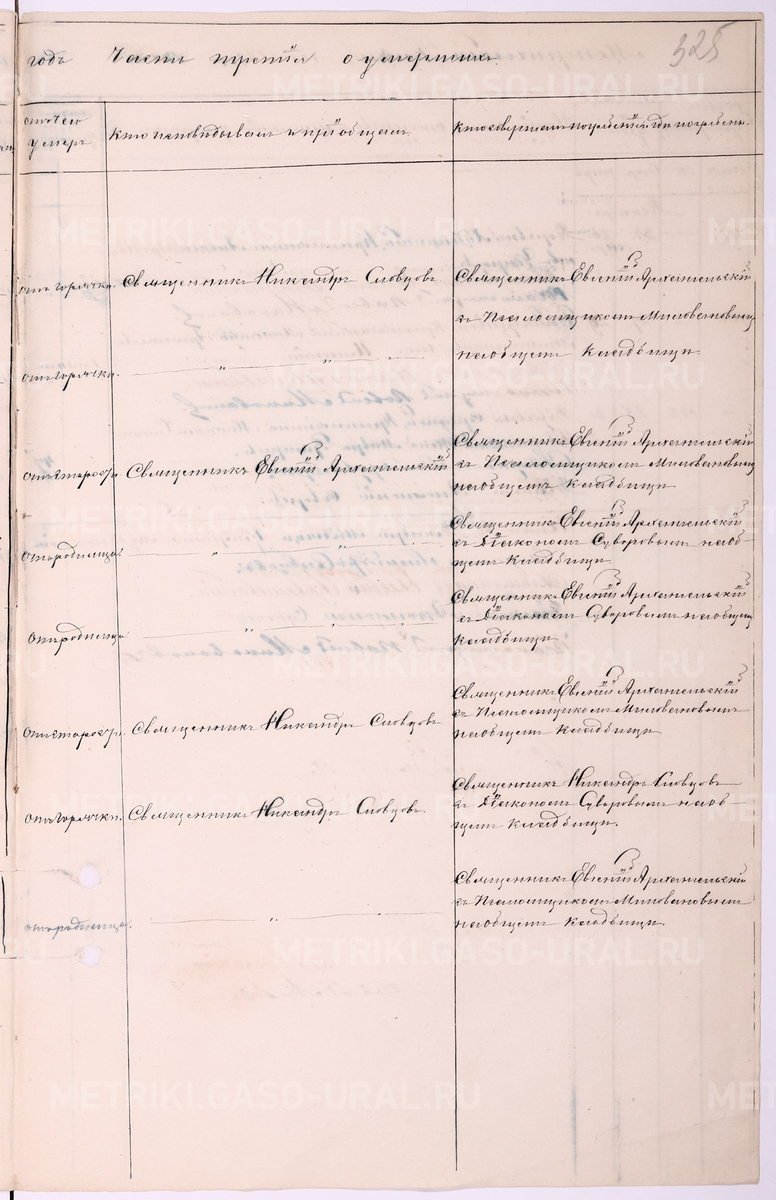 годъ Часть третія о умершихъ.
325
отъ чего умеръ
Кто исповѣдывалъ и пріобщалъ.
Кто совершалъ погребеніе и гдѣ погребены.
отъ горячки. Священникъ Никандръ Словцовъ
Священникъ Евгеній Архангельскій
съ Псаломщикомъ Миловановымъ
на общемъ кладбищи.
отъ горячки. — „ — „ —
отъ старости. Священникъ Евгеній Архангельскій
Священникъ Евгеній Архангельскій
съ Псаломщикомъ Миловановымъ
на общемъ кладбищи.
отъ родимца. — „ — „ —
Священникъ Евгеній Архангельскій
съ Діакономъ Суворовымъ на об-
щемъ кладбищи.
отъ родимца — „ — „ —
Священникъ Евгеній Архангельскій
съ Діакономъ Суворовымъ на общемъ
кладбищи.
отъ старости. Священникъ Никандръ Словцовъ
Священникъ Евгеній Архангельскій
съ Псаломщикомъ Миловановымъ
на общемъ кладбищи.
отъ горячки. Священникъ Никандръ Словцовъ.
Священникъ Никандръ Словцовъ
съ Діакономъ Суворовымъ на об-
щемъ кладбищи.
отъ родимца. — „ —
Священникъ Евгеній Архангельскій
съ Псаломщикомъ Миловановымъ
на общемъ кладбищи.
METRIKI.GASO-URAL.RU